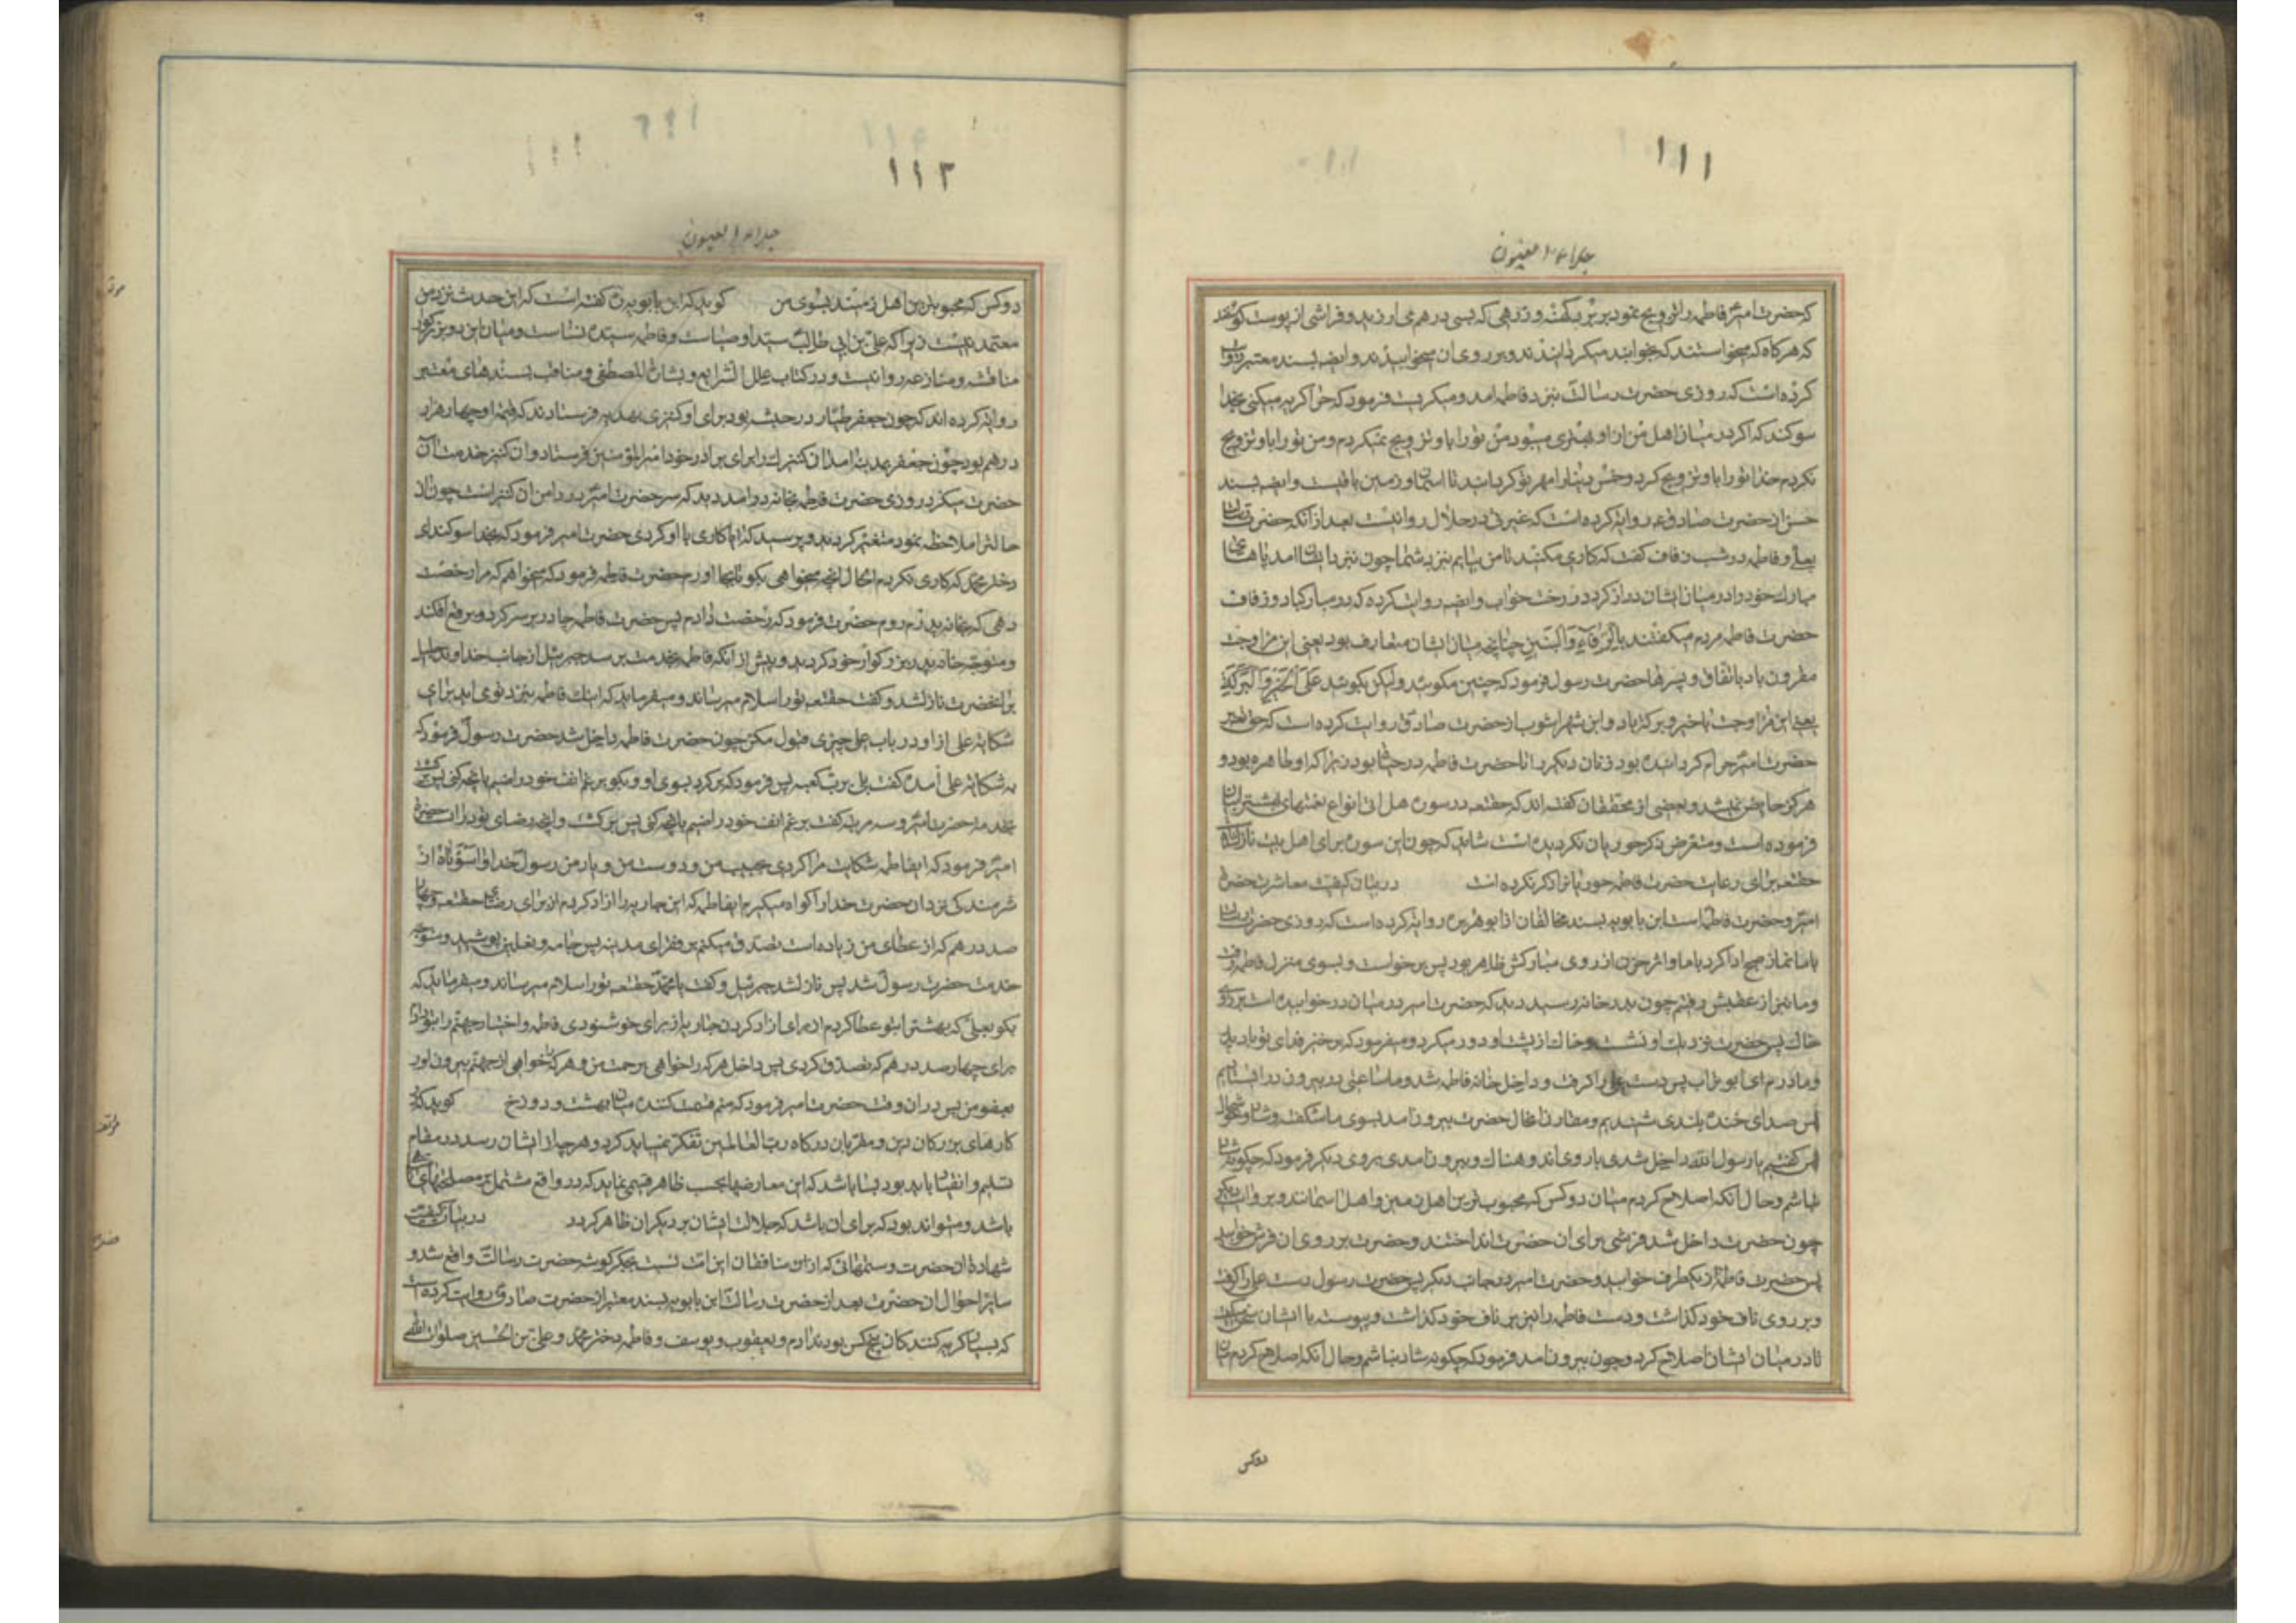 ۱۱۱
جلاء العیون
که حضرت امیر فاطمه را تزویج نمود بر برد کهنه و زرهی که بسی درهم می ارزید و فراشی از پوست کوسفند
که هرکاه که میخواستند که بخوابند میکردانیدند و بر روی ان میخوابیدند و ایضا بسند معتبر روایت
کرده است که روزی حضرت رسالت بنزد فاطمه امد و میکریست فرمود که چرا کریه میکنی بخدا
سوکند که اکر در میان اهل من از او بهتری میبود من تو را باو تزویج نمیکردم و من تو را باو تزویج
نکردم خدا تو را باو تزویج کرد و خمس دنیا را مهر تو کردانید تا اسمان و زمین باقیست و ایضا بسند
حسن از حضرت صادق ع روایة کرده است که غیرتی در حلال روا نیست بعد از انکه حضرت رسالت
بعلی و فاطمه در شب زفاف کفت که کاری مکنید تا من بیایم بنزد شما چون نزد ایشان امد پاهای
مبارک خود را در میان ایشان دراز کرد در رخت خواب و ایضا روایت کرده که در مبارکباد زفاف
حضرت فاطمه مردم میکفتند بالرفاء والبنین چنانچه میان ایشان متعارف بود یعنی این مزاوجت
مقرون باد باتفاق و پسرها حضرت رسول فرمود که چنین مکوئید ولیکن بکوئید علی الخیر والبرکة
یعنی این مزاوجت با خیر و برکة باد و ابن شهراشوب از حضرت صادق روایت کرده است که حقتعالی بر
حضرت امیر حرام کردانیده بود زنان دیکر را تا حضرت فاطمه در حیوة بود زیرا که او طاهره بود و
هرکز حایض نمیشد و بعضی از محققان کفته اند که حقتعه در سوره هل اتی انواع نعمتهای بهشت را بیان
فرموده است و متعرض ذکر حوریان نکردیده است شاید که چون این سوره برای اهل بیت نازل شده
حقتعه برای رعایت حضرت فاطمه حوریان را ذکر نکرده است در بیان کیفیت معاشرت حضرت
امیر و حضرت فاطمه است ابن بابویه بسند مخالفان از ابو هریره روایة کرده است که روزی حضرت رسالت
با ما نماز صبح ادا کرد با ما و اثر حزن از روی مبارکش ظاهر بود پس برخواست و بسوی منزل فاطمه رفت
و ما نیز از عقبش رفتیم چون بدر خانه رسید دید که حضرت امیر در میان در خوابیده است بر روی
خاک پس حضرت نزدیک او نشست و خاک از پشت او دور میکرد و میفرمود که برخیز فدای تو باد پدر
و مادرم ای ابو تراب پس دست علی را کرفت و داخل خانه فاطمه شد و ما ساعتی در بیرون در ایستادیم
پس صدای خنده بلندی شنیدیم و مقارن انحال حضرت بیرون امد بسوی ما شکفته و شاد و خوشحال
پس کفتیم یا رسول الله داخل شدی با روی اندوهناک و بیرون امدی بروی دیکر فرمود که چکونه شاد
نباشم و حال انکه اصلاح کردم میان دو کس که محبوب ترین اهل زمین و اهل اسمانند و بروایت دیکر
چون حضرت داخل شد فرشی برای ان حضرت انداختند و حضرت بر روی ان فرش خوابید
پس حضرت فاطمه از یکطرف خوابید و حضرت امیر در جانب دیکر پس حضرت رسول دست علی را کرفت
و بر روی ناف خود کذاشت و دست فاطمه را نیز بر ناف خود کذاشت و پیوسته با ایشان سخن میکفت
تا در میان ایشان اصلاح کرد و چون بیرون امد فرمود که چکونه شاد نباشم و حال انکه اصلاح کردم میان
دو کس
۱۱۲
جلاء العیون
دو کس که محبوبترین اهل زمینند بسوی من کوید که ابن بابویه ره کفته است که این حدیث نزد من
معتمد نیست زیرا که علی بن ابی طالب سید اوصیاست و فاطمه سیده نساست و میان این دو بزرکوار
مناقشه و منازعه روا نیست و در کتاب علل الشرایع و بشارة المصطفی و مناقب بسندهای معتبر
روایة کرده اند که چون جعفر طیار در حبشه بود برای او کنیزی بهدیه فرستادند که قیمة او چهار هزار
درهم بود چون جعفر بمدینه امد ان کنیزک را برای برادر خود امیرالمؤمنین فرستاد و ان کنیز خدمت ان
حضرت میکرد روزی حضرت فاطمه بخانه درامد دید که سر حضرت امیر در دامن ان کنیز است چون ان
حالترا ملاحظه نمود متغیر کردید و پرسید که ایا کاری با او کردی حضرت امیر فرمود که بخدا سوکند ای
دختر محمد که کاری نکردم الحال انچه میخواهی بکو تا بجا اورم حضرت فاطمه فرمود که میخواهم که مرا رخصت
دهی که بخانه پدرم روم حضرت فرمود که رخصت دادم پس حضرت فاطمه چادر بر سر کرد و برقع افکند
و متوجه خانه پدر بزرکوار خود کردید و پیش از انکه فاطمه بخدمت برسد جبرئیل از جانب خداوند جلیل
بر انحضرت نازلشد و کفت حقتعه تو را سلام میرساند و میفرماید که اینک فاطمه بنزد تو می اید برای
شکایة علی از او در باب علی چیزی قبول مکن چون حضرت فاطمه داخل شد حضرت رسول فرمود که
به شکایة علی امده کفت بلی برب کعبه پس فرمود که برکرد بسوی او و بکو برغم انف خود راضیم بانچه کنی پس برکشت
بخدمة حضرت امیر و سه مرتبه کفت برغم انف خود راضیم بانچه کنی
امیر فرمود که ایفاطمه شکایت مرا کردی بحبیب من و دوست من و یار من رسول خدا واسوأتاه از
شرمندکی نزد ان حضرت خدا را کواه میکیرم ایفاطمه که این جاریه را ازاد کردم از برای رضای حقتعه و چهار
صد درهم که از عطای من زیاده است تصدق میکنم بر فقرای مدینه پس جامه و نعلین پوشید و متوجه
خدمت حضرت رسول شد پس نازلشد جبرئیل و کفت یا محمد حقتعه تو را سلام میرساند و میفرماید که
بکو بعلی که بهشترا بتو عطا کردم از برای ازاد کردن جاریه از برای خوشنودی فاطمه و اختیار جهنم را بتو دادم
برای چهار صد درهم که تصدق کردی پس داخل هر که را خواهی برحمت من و هر که خواهی از جهنم بیرون اور
بعفو من پس در ان وقت حضرت امیر فرمود که منم قسمت کننده میان بهشت و دوزخ کوید که در
کارهای بزرکان دین و مقربان درکاه رب العالمین تفکر نمیباید کرد و هر چه از ایشان رسد در مقام
تسلیم و انقیاد باید بود بسا باشد که این معارضها بحسب ظاهر قبیح نماید که در واقع مشتمل بر مصلحتهای
باشد و میتواند بود که برای ان باشد که جلالت ایشان بر دیکران ظاهر کردد در بیان کیفیت
شهادة ان حضرت و ستمهائی که از ان منافقان این امت نسبت بجکرکوشه حضرت رسالت واقع شد و
سایر احوال ان حضرت بعد از حضرت رسالت ابن بابویه بسند معتبر از حضرت صادق روایت کرده است
که بسیار کریه کنندکان پنج کس بودند ادم و یعقوب و یوسف و فاطمه دختر محمد و علی بن الحسین صلوات الله